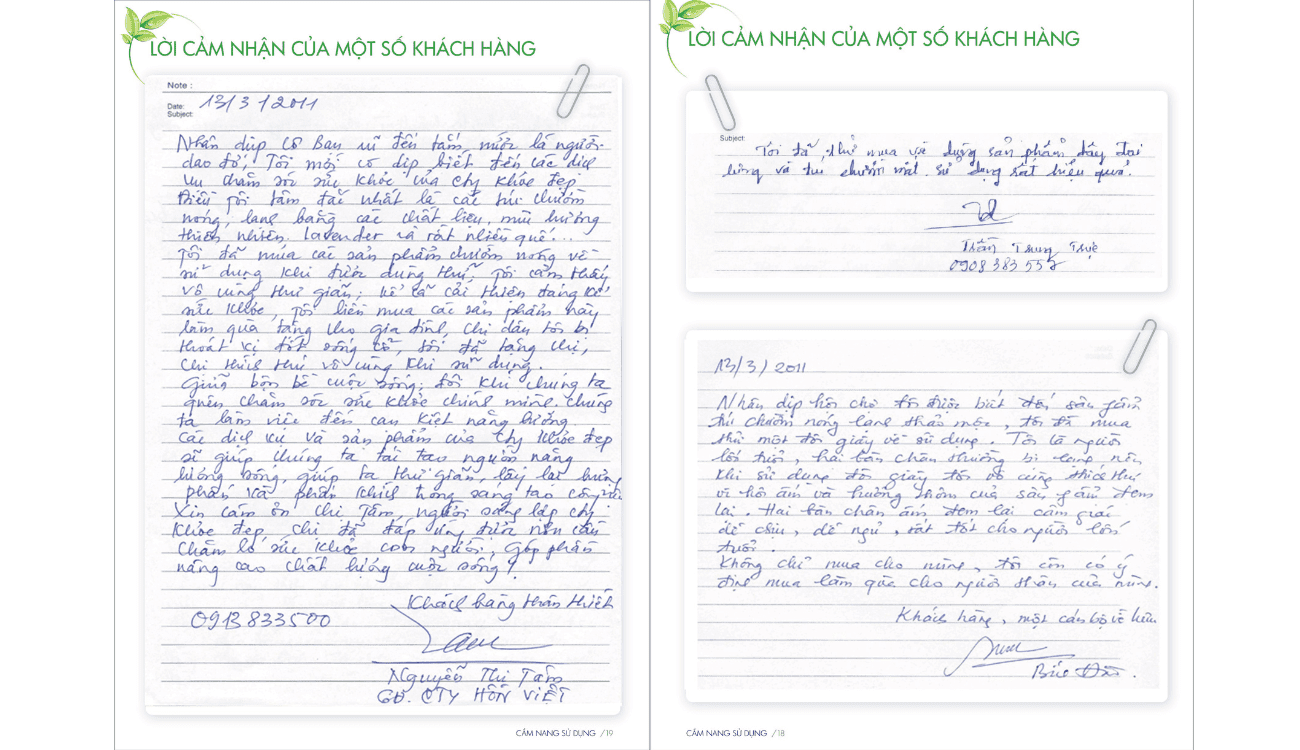 LỜI CẢM NHẬN CỦA MỘT SỐ KHÁCH HÀNG
Note :
Date: 13/3/2011
Subject:
Nhân dịp cô bạn đến tắm, mười là người
dao đỏ, Tôi mới có dịp biết đến các dịch
vụ chăm sóc sức khỏe của cty khỏe đẹp
Điều tôi tâm đắc nhất là các túi chườm
nóng, lạnh bằng các chất liệu, mùi hương
thiên nhiên. lavender và rất nhiều quế...
Tôi đã mua các sản phẩm chườm nóng về
sử dụng khi được dùng thử, tôi cảm thấy
vô cùng thư giãn, kể cả cải thiện đáng kể
sức khỏe, tôi liền mua các sản phẩm này
làm quà tặng cho gia đình, chị dâu tôi bị
thoát vị đốt sống cổ, tôi đã tặng chị,
chị thích thú vô cùng khi sử dụng.
Giữa bộn bề cuộc sống, đôi khi chúng ta
quên chăm sóc sức khỏe chính mình. chúng
ta làm việc đến cạn kiệt năng lượng.
Các dịch vụ và sản phẩm của cty khỏe đẹp
sẽ giúp chúng ta tái tạo nguồn năng
lượng sống, giúp ta thư giãn, lấy lại hưng
phấn và phấn khích trong sáng tạo công việc
Xin cám ơn chị Tâm, người sáng lập cty
Khỏe đẹp, chị đã đáp ứng được nhu cầu
chăm lo sức khỏe con người, góp phần
nâng cao chất lượng cuộc sống!
Khách hàng thân thiết
0913 833500
Nguyễn Thị Tâm
GĐ. CTY HỒN VIỆT
CẨM NANG SỬ DỤNG /19
LỜI CẢM NHẬN CỦA MỘT SỐ KHÁCH HÀNG
Subject:
Tôi đã thử mua về dụng sản phẩm dây đai
lưng và túi chườm mắt. sử dụng rất hiệu quả.
Trần Trung Trực
0908 383 557
13/3/2011
Nhân dịp hội chợ tôi được biết đến sản phẩm
túi chườm nóng lạnh thảo mộc, tôi đã mua
thử một đôi giày về sử dụng. Tôi là người
lớn tuổi, hai bàn chân thường bị lạnh nên
khi sử dụng đôi giày tôi vô cùng thích thú
vì hơi ấm và hương thơm của sản phẩm đem
lại. Hai bàn chân ấm đem lại cảm giác
dễ chịu, dễ ngủ, rất tốt cho người lớn
tuổi.
Không chỉ mua cho mình, tôi còn có ý
định mua làm quà cho người thân của mình.
Khách hàng, một cán bộ về hưu
CẨM NANG SỬ DỤNG /18